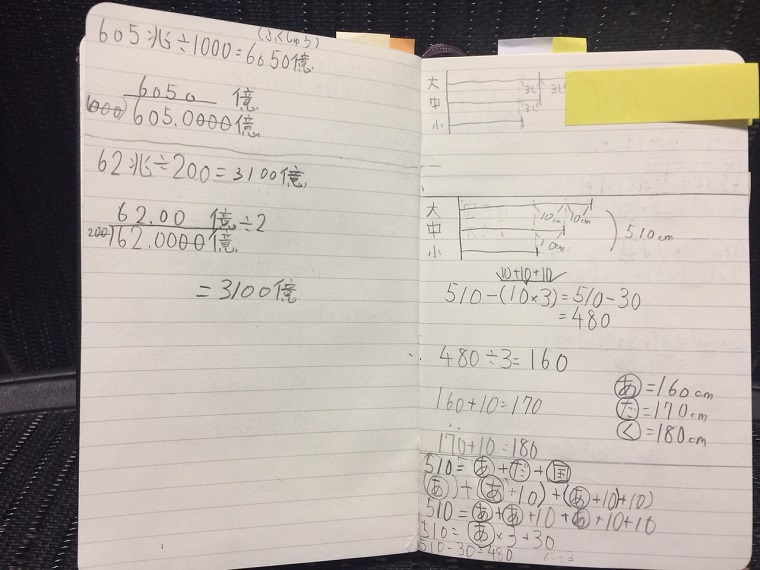 (ふくしゅう)
605兆÷1000=6050億
6050 億
1000)605.0000億
62兆÷200=3100億
62.00 億÷2
200)62.0000億
=3100億
大
中
小
3L
3L
3L
大
中
小
10cm 10cm
10cm
510cm
10+10+10
510-(10×3)=510-30
=480
480÷3=160
160+10=170
170+10=180
あ=160cm
た=170cm
く=180cm
510=あ+た+国
(あ)+(あ+10)+(あ+10+10)
510=あ+あ+10+あ+10+10
510=あ×3+30
510-30=480